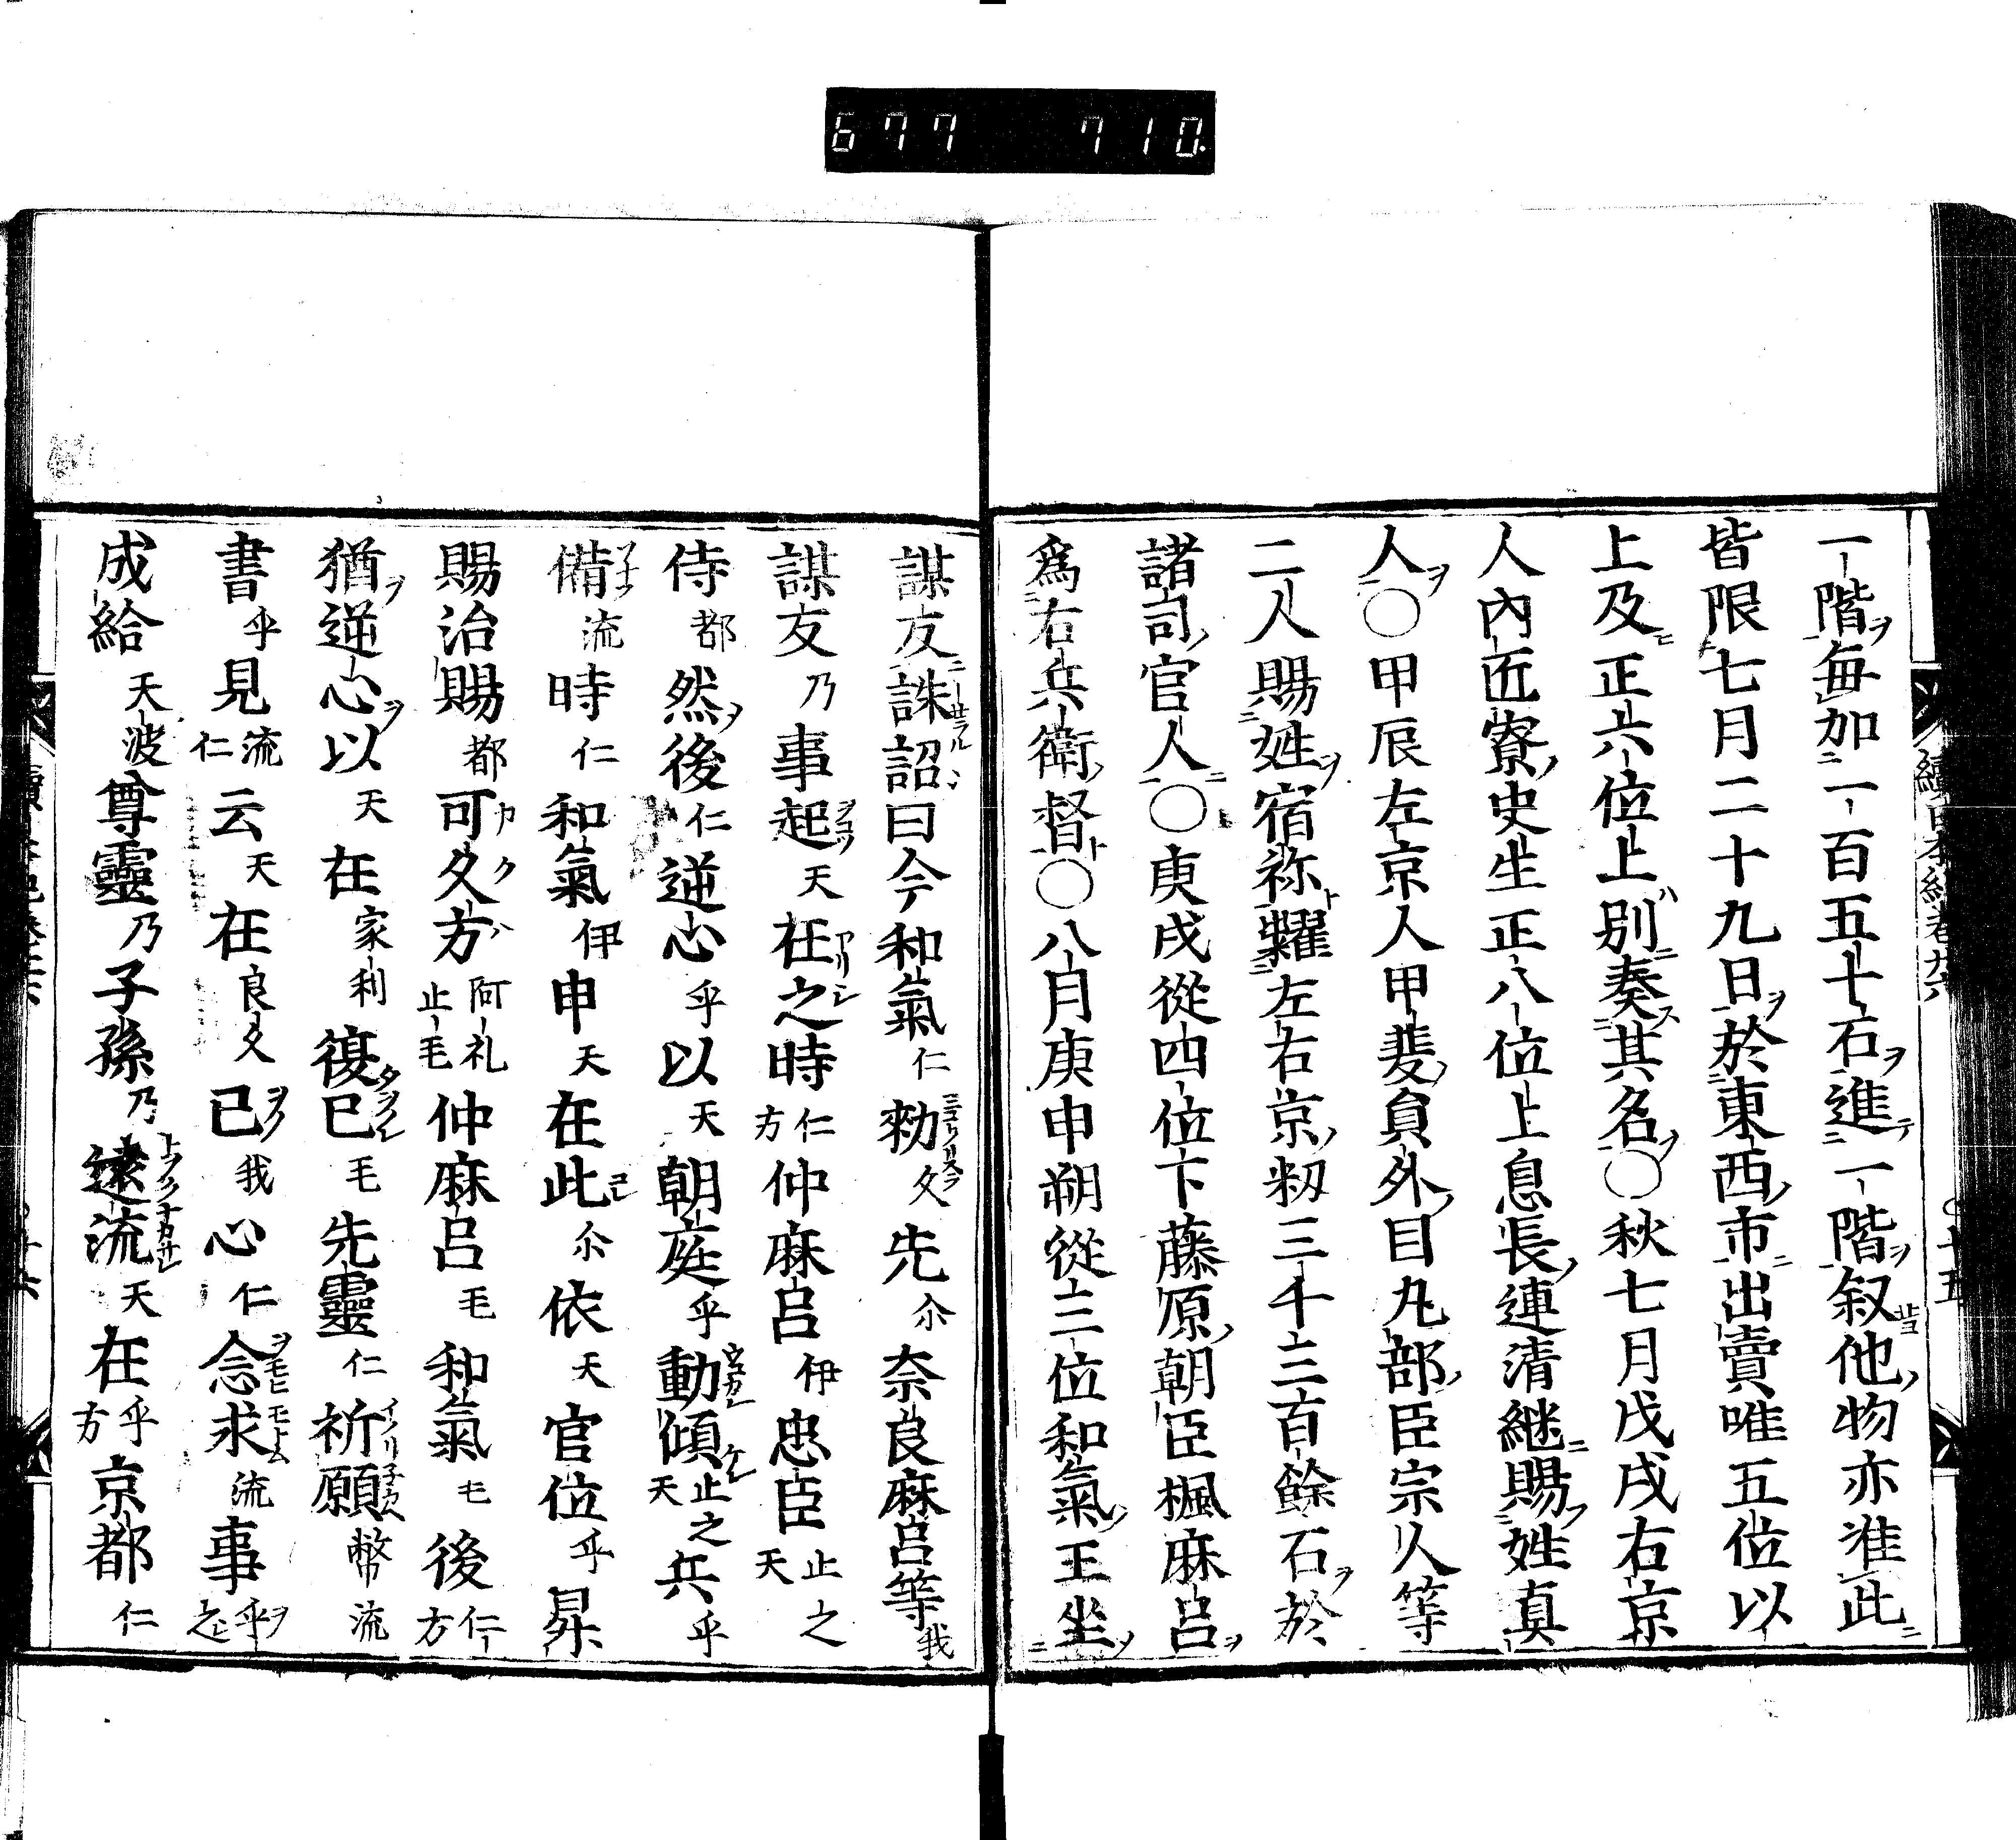 677 710.
一階毎加一百五十石進一階叙他物亦准此
皆限七月二十九日於東西市出賣唯五位以
上及正六位上別奏其名○秋七月戊戌右京
人內匠寮史生正八位上息長連清継賜姓真
人○甲辰左京人甲斐員外目丸部臣宗人等
二人賜姓宿祢糶左右京籾三千三百餘石於
諸司官人○庚戌從四位下藤原朝臣楓麻呂
爲右兵衛督○八月庚申朔從三位和氣王坐
謀反誅詔曰今和氣仁勑久先尓奈良麻呂等我
謀友乃事起天在之時仁方仲麻呂伊忠臣止之天
侍都然後仁逆心乎以天朝庭乎動傾止之天兵乎
備流時仁和氣伊申天在此尓依天官位乎昇
賜治賜都可久方阿礼止毛仲麻呂毛和氣毛後仁方
猶逆心以天在家利復己毛先靈仁祈願幣流
書乎見流仁云天在良久己我心仁念求流事乎之
成給天波尊靈乃子孫乃遠流天在乎方京都仁